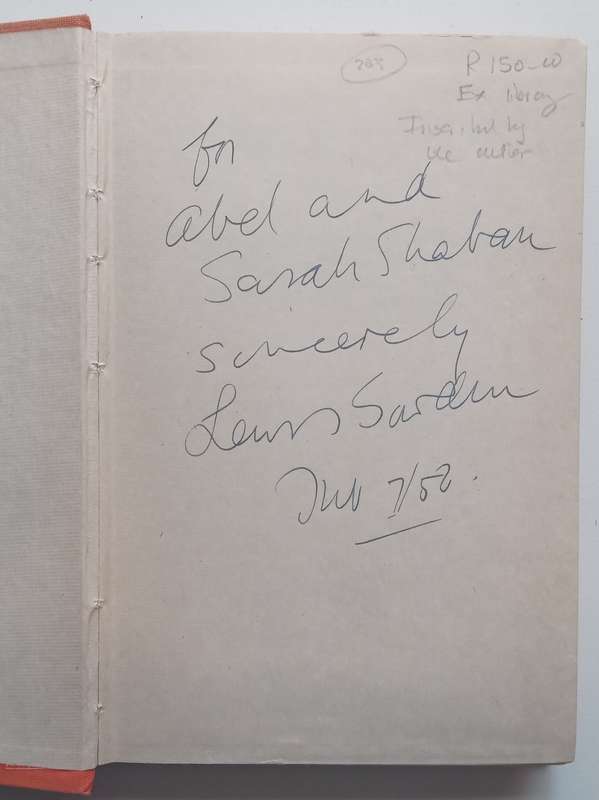 R150-00
Ex library
Inscribed by
the author
for
Abel and
Sarah Shaban
sincerely
Lewis Sowden
7/52.